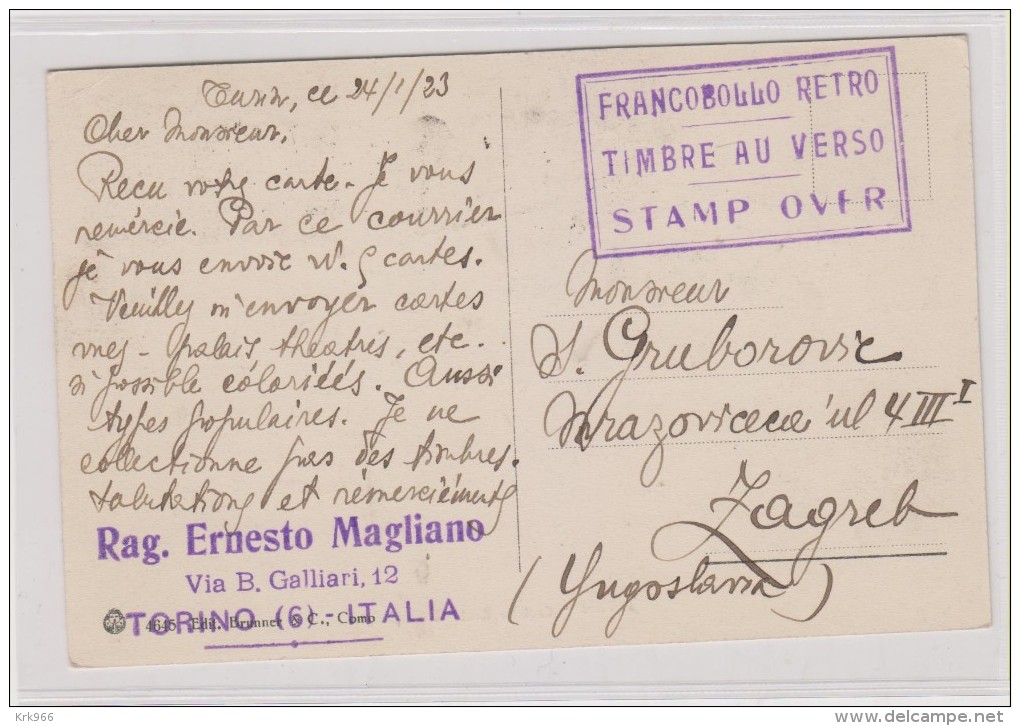 Turin, ce 24/1/23
Cher Monsieur,
Recu votre carte. Je vous
remércie. Par ce courrier
je vous envoie N. 5 cartes.
Veuilley m'envoyer cartes
vues - palais, theatres, etc.
si possible coloriéés. Aussi
types populaires. Je ne
collectionne pas des timbres.
Salutations et rémerciéments
Rag. Ernesto Magliano
Via B. Galliari, 12
TORINO (6) - ITALIA
4645 Edit. Brunner & C., Como
FRANCOBOLLO RETRO
TIMBRE AU VERSO
STAMP OVER
Monsieur
S. Gruborovic
ul 4 III I
Zagreb
(Yugoslavia)
Krk966
www.delcampe.net